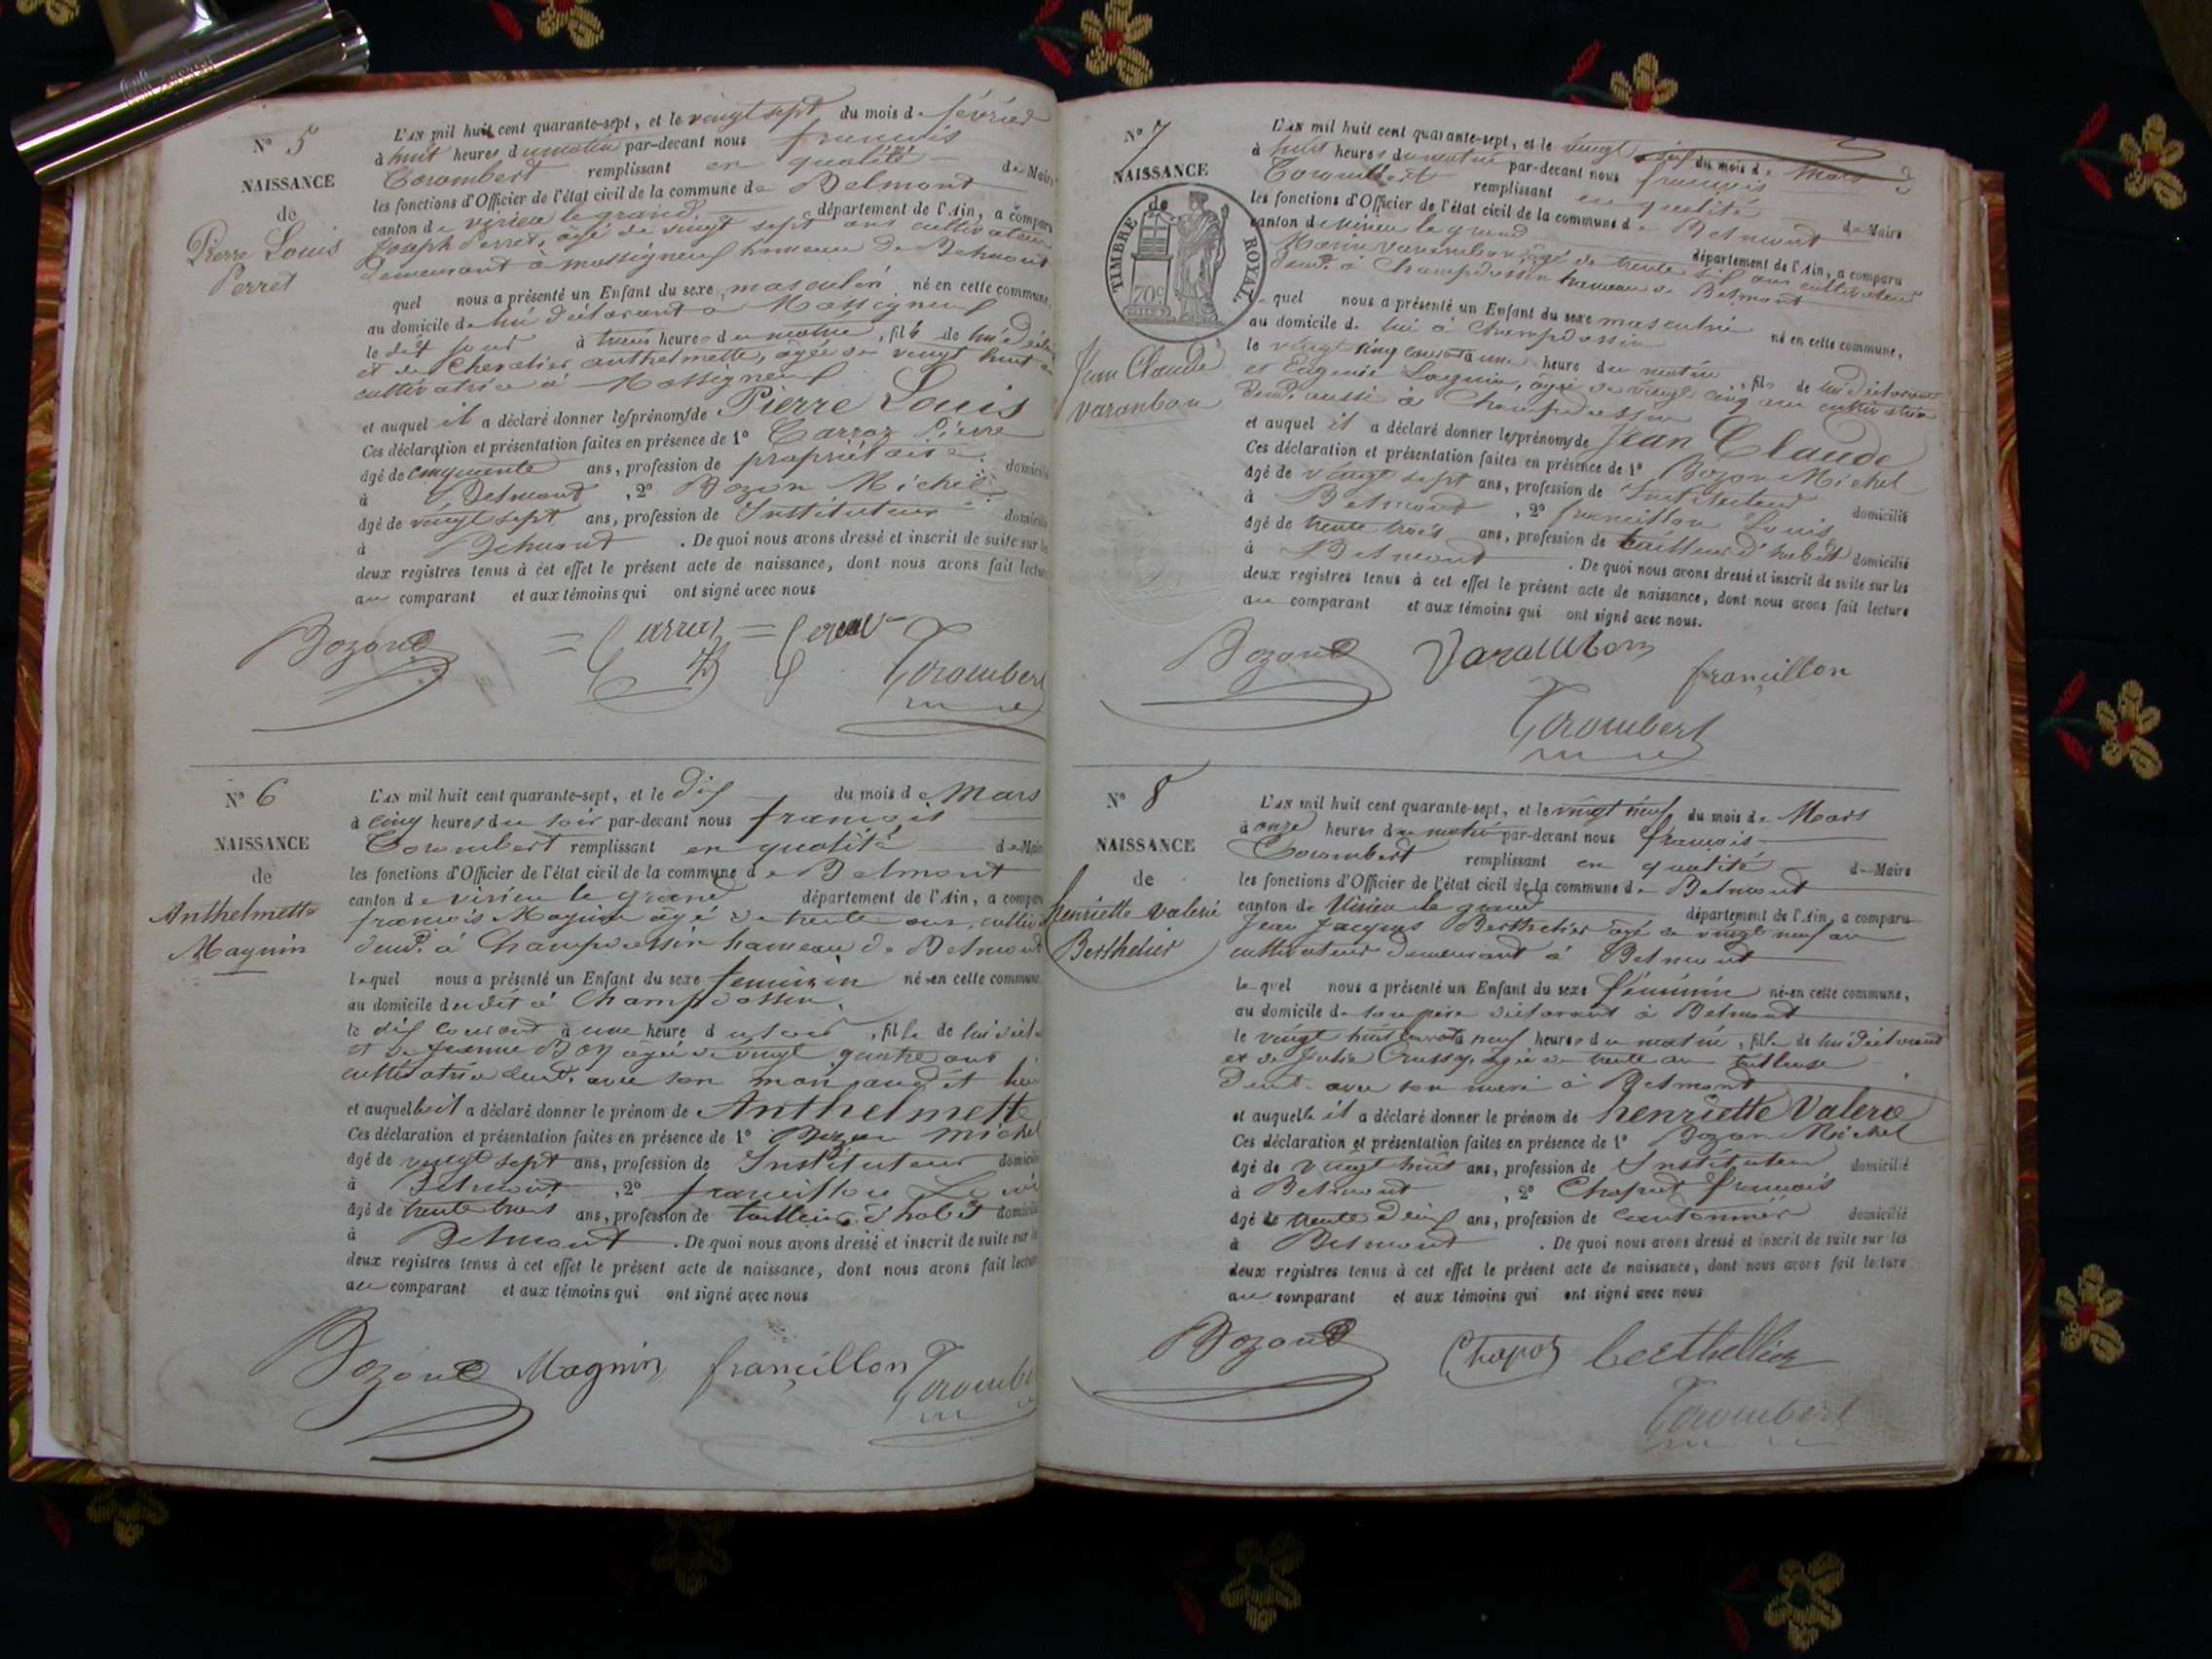 N° 5
NAISSANCE
de
Pierre Louis
Perret
L'AN mil huit cent quarante-sept, et le vingt sept du mois de février
à huit heures du matin par-devant nous francois
Corombert remplissant en qualité de Maire
les fonctions d'Officier de l'état civil de la commune de Belmont
canton de virieu le grand, département de l'Ain, a comparu
Joseph Perret, âgé de vingt sept ans cultivateur
demeurant à massigneuf hameau de Belmont
quel nous a présenté un Enfant du sexe masculin né en cette commune,
au domicile de lui déclarant à Massigneuf
le dit jour à trois heures du matin, fils de lui décla
et de Chevalier anthelmette, âgée de vingt huit
cultivatrice à Massigneuf
et auquel il a déclaré donner les prénoms de Pierre Louis
Ces déclaration et présentation faites en présence de 1° Carraz Pierre
âgé de cinquante ans, profession de propriétaire domicilié
à Belmont, 2° Bozon Michel
âgé de vingt sept ans, profession de Instituteur domicilié
à Belmont. De quoi nous avons dressé et inscrit de suite sur les
deux registres tenus à cet effet le présent acte de naissance, dont nous avons fait lecture
au comparant et aux témoins qui ont signé avec nous
Bozon Carraz
Corombert
N° 6
NAISSANCE
de
Anthelmette
Magnin
L'AN mil huit cent quarante-sept, et le dix du mois de Mars
à cinq heures du soir par-devant nous francois
Corombert remplissant en qualité de Maire
les fonctions d'Officier de l'état civil de la commune de Belmont
canton de virieu le grand département de l'Ain, a comparu
francois Magnin âgé de trente ans, cultiv
demt. à Champdossin hameau de Belmont
lequel nous a présenté un Enfant du sexe feminin né en cette commune
au domicile dudit à Champdossin,
le dix courant à une heure du soir, fille de lui décl
et de Jeanne Boy agée de vingt quatre ans
cultivatrice demt. avec son mari audit
et auquelle il a déclaré donner le prénom de Anthelmette
Ces déclaration et présentation faites en présence de 1° Bozon Michel
âgé de vingt sept ans, profession de Instituteur domicilié
à Belmont, 2° francillon Louis
âgé de trente trois ans, profession de tailleur d'habit domicilié
à Belmont. De quoi nous avons dressé et inscrit de suite sur les
deux registres tenus à cet effet le présent acte de naissance, dont nous avons fait lecture
au comparant et aux témoins qui ont signé avec nous
Bozon Magnin francillon Corombert
N° 7
NAISSANCE
de
TIMBRE ROYAL.
Jean Claude
varanbon
L'AN mil huit cent quarante-sept, et le vingt six du mois de Mars
à huit heures du matin par-devant nous francois
Corombert remplissant en qualité de Maire
les fonctions d'Officier de l'état civil de la commune de Belmont
canton de Virieu le grand département de l'Ain, a comparu
Marin varambon âgé de trente six ans cultivateur
demt. à Champdossin hameau de Belmont
le quel nous a présenté un Enfant du sexe masculin né en cette commune,
au domicile de lui à Champdossin
le vingt cinq courant à une heure du matin, fils de lui déclarant
et Eugenie Laguin, âgée de vingt cinq ans cultivatrice
demt. aussi à Champdossin
et auquel il a déclaré donner les prénoms de Jean Claude
Ces déclaration et présentation faites en présence de 1° Bozon Michel
âgé de vingt sept ans, profession de Instituteur domicilié
à Belmont, 2° francillon Louis
âgé de trente trois ans, profession de tailleur d'habit domicilié
à Belmont. De quoi nous avons dressé et inscrit de suite sur les
deux registres tenus à cet effet le présent acte de naissance, dont nous avons fait lecture
au comparant et aux témoins qui ont signé avec nous.
Bozon Varambon francillon
Corombert
N° 8
NAISSANCE
de
henriette valerie
Berthelier
L'AN mil huit cent quarante-sept, et le vingt neuf du mois de Mars
à onze heures du matin par-devant nous francois
Corombert remplissant en qualité de Maire
les fonctions d'Officier de l'état civil de la commune de Belmont
canton de Virieu le grand département de l'Ain, a comparu
Jean Jacques Berthelier âgé de vingt neuf ans
cultivateur demeurant à Belmont
le quel nous a présenté un Enfant du sexe féminin né en cette commune,
au domicile de son père déclarant à Belmont
le vingt huit courant à neuf heures du matin, fille de lui déclarant
et de Julie Crussy, agée de trente ans tailleuse
demt. avec son mari à Belmont
et auquelle il a déclaré donner le prénom de henriette Valerie
Ces déclaration et présentation faites en présence de 1° Bozon Michel
âgé de vingt huit ans, profession de Instituteur domicilié
à Belmont, 2° Chapot francois
âgé de trente deux ans, profession de cantonnier domicilié
à Belmont. De quoi nous avons dressé et inscrit de suite sur les
deux registres tenus à cet effet le présent acte de naissance, dont nous avons fait lecture
au comparant et aux témoins qui ont signé avec nous
Bozon Chapot berthellier
Corombert